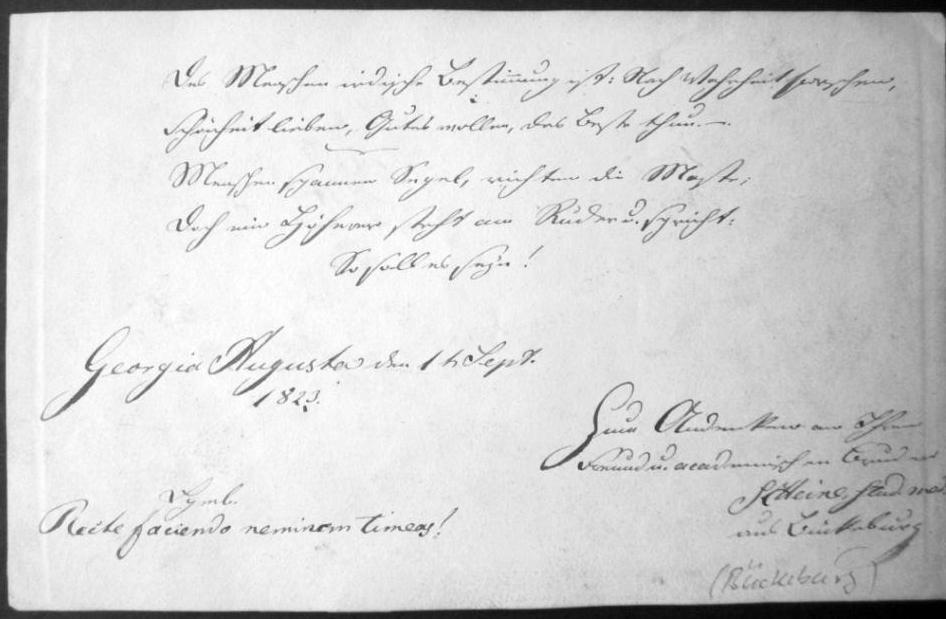 Des Menschen irdische Bestimmung ist: Nach Wahrheit forschen,
Schönheit lieben, Gutes wollen, das Beste thun. –
Menschen spannen Segel, richten die Maste;
Doch ein Höherer steht am Ruder u. spricht:
So soll es seyn!
Georgia Augusta den Sept.
1823.
Zum Andenken an Ihren
Freund u. academischen Bruder
Heine, stud. med.
aus Bückeburg
(Bückeburg)
Symb.
Recte faciendo neminem timeas!